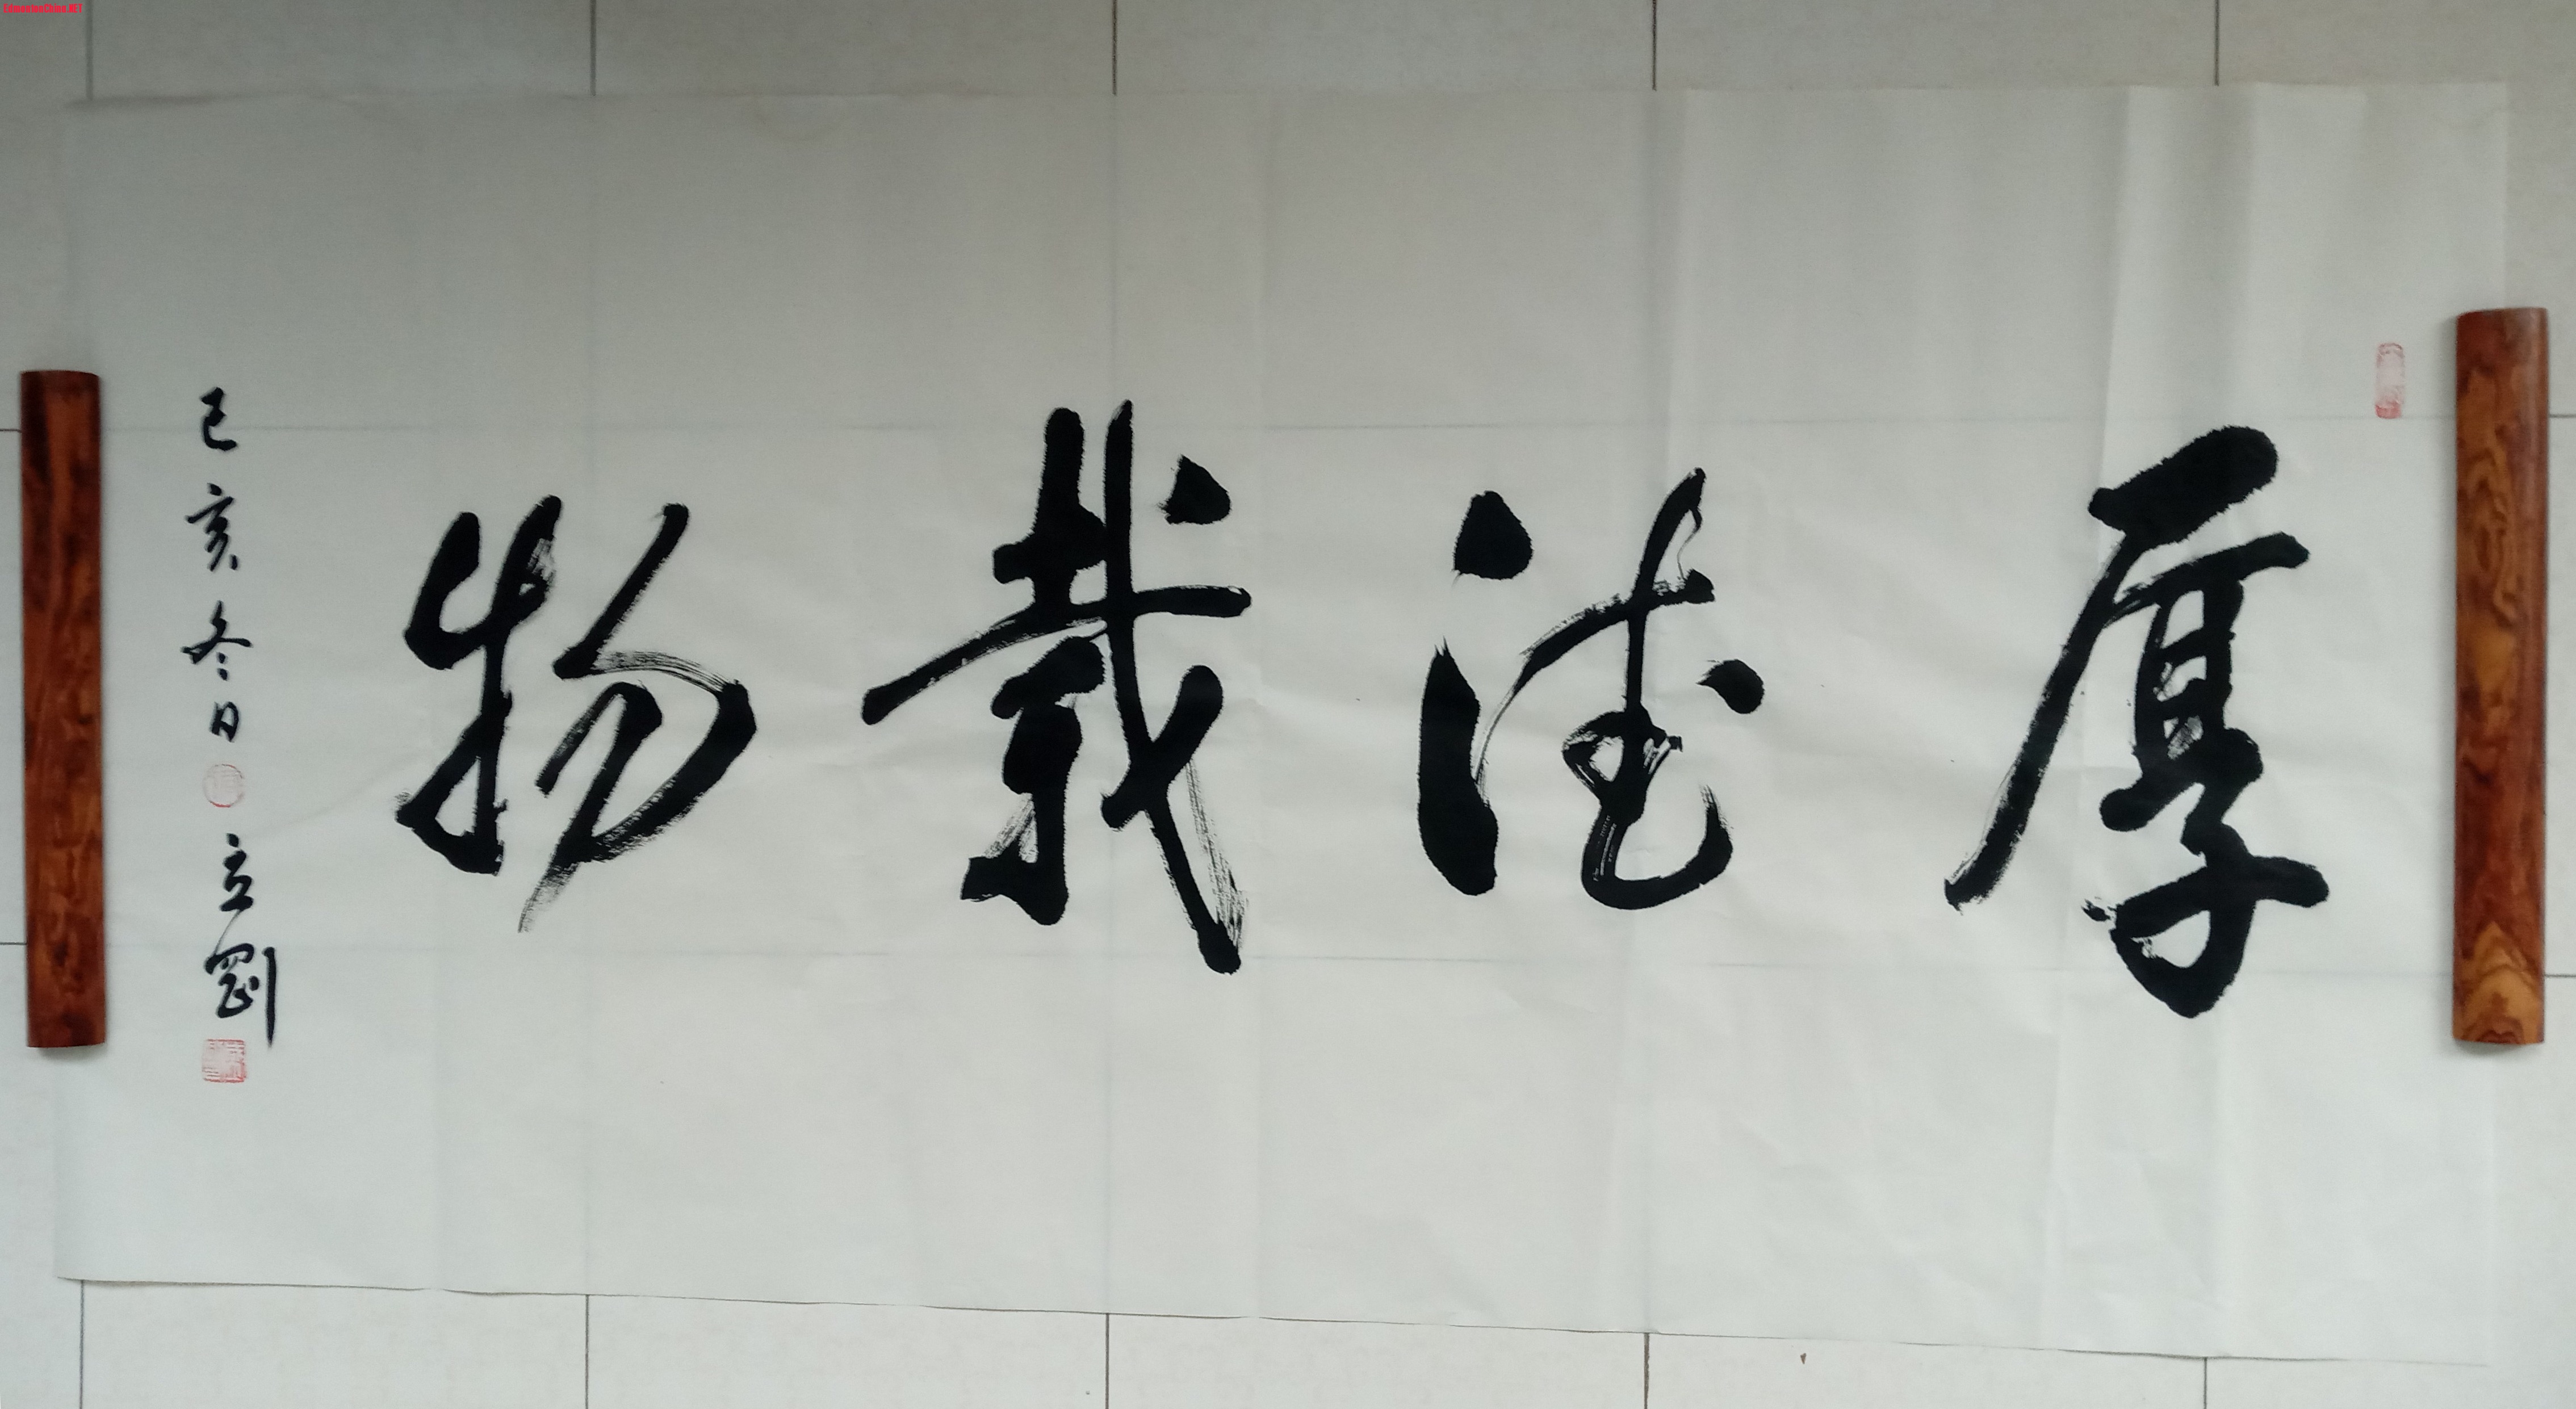 EdmontonChina.NET
厚德载物
己亥冬日
立刚